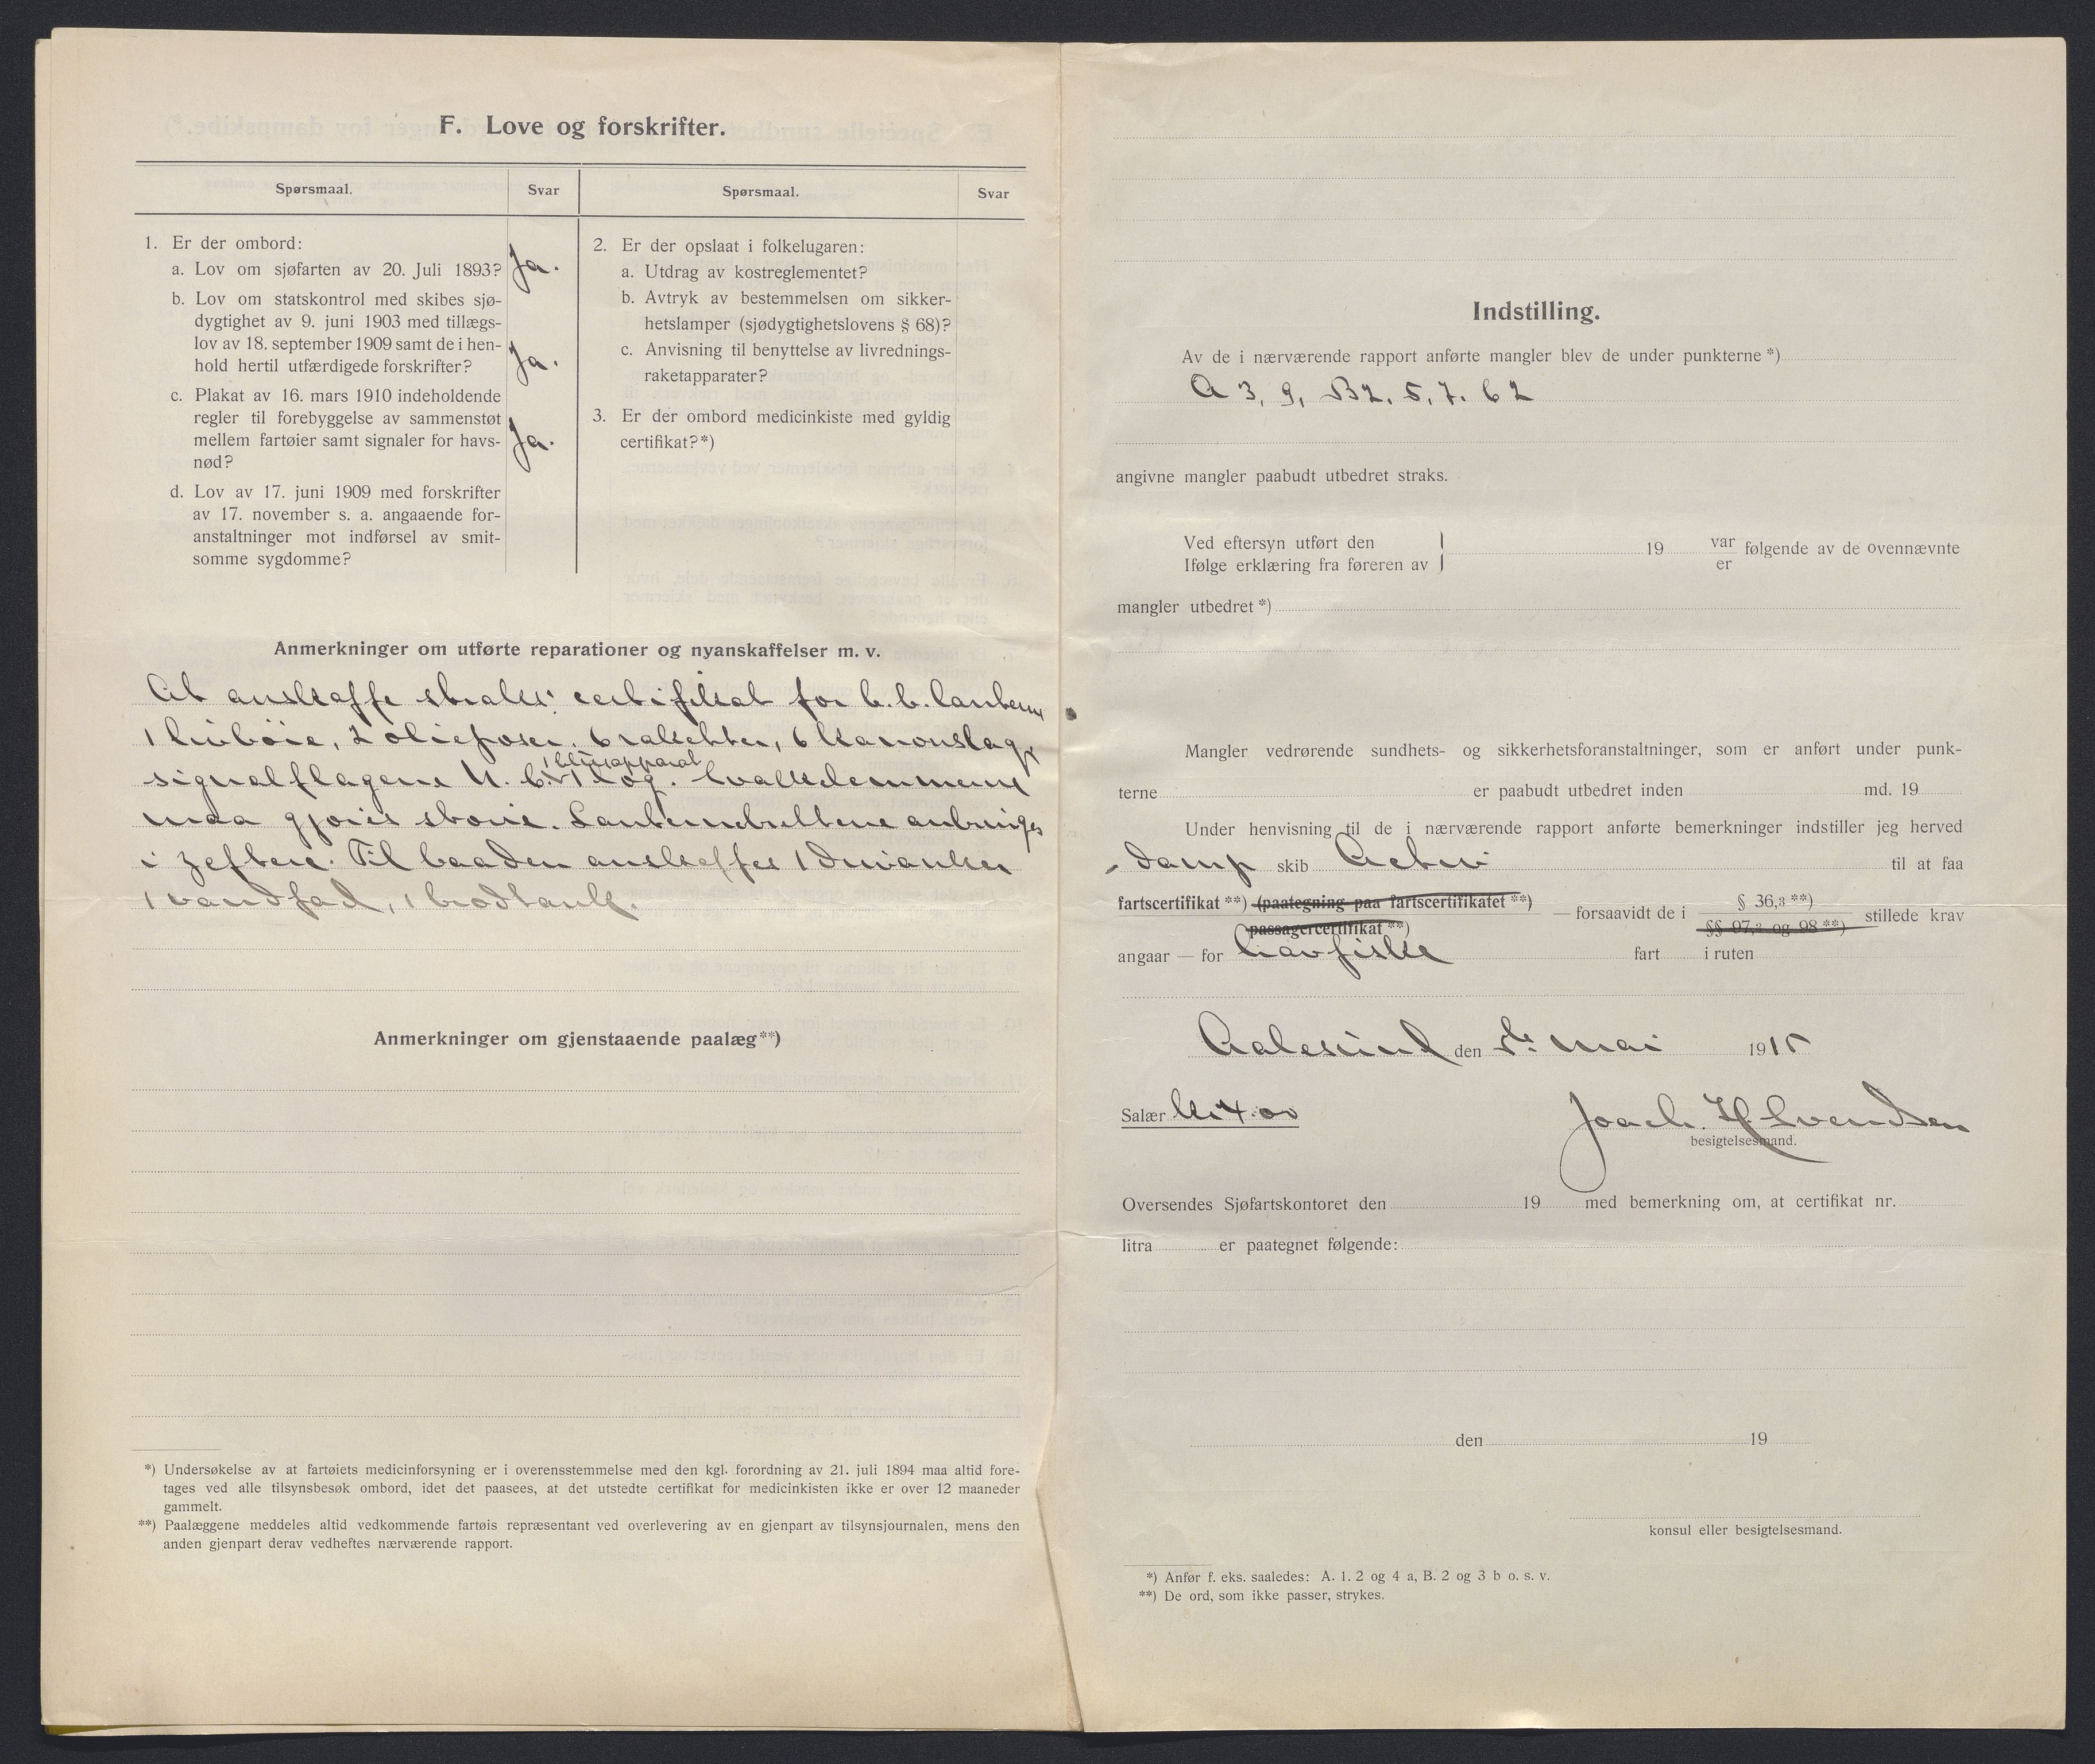 F. Love og forskrifter.
Spørsmaal.
Svar
Spørsmaal.
Svar
1. Er der ombord:
a. Lov om sjøfarten av 20. Juli 1893?
Ja.
b. Lov om statskontrol med skibes sjø-
dygtighet av 9. juni 1903 med tillægs-
lov av 18. september 1909 samt de i hen-
hold hertil utfærdigede forskrifter?
Ja.
c. Plakat av 16. mars 1910 indeholdende
regler til forebyggelse av sammenstøt
mellem fartøier samt signaler for havs-
nød?
Ja.
d. Lov av 17. juni 1909 med forskrifter
av 17. november s. a. angaaende for-
anstaltninger mot indførsel av smit-
somme sygdomme?
2. Er der opslaat i folkelugaren:
a. Utdrag av kostreglementet?
b. Avtryk av bestemmelsen om sikker-
hetslamper (sjødygtighetslovens § 68)?
c. Anvisning til benyttelse av livrednings-
raketapparater?
3. Er der ombord medicinkiste med gyldig
certifikat?*)
Anmerkninger om utførte reparationer og nyanskaffelser m. v.
At anskaffe straks: certifikat for b.b. lanterne
1 livbøie, 2 olieposer, 6 raketter, 6 kanonslag,
1 blussapparat
signalflagene N. C. 1 log.
maa gjøres større. Lanternebrettene anbringes
i . Til baaden anskaffes 1 drivanker
1 vandfad, 1 brødtank.
Anmerkninger om gjenstaaende paalæg**)
*) Undersøkelse av at fartøiets medicinforsyning er i overensstemmelse med den kgl. forordning av 21. juli 1894 maa altid fore-
tages ved alle tilsynsbesøk ombord, idet det paasees, at det utstedte certifikat for medicinkisten ikke er over 12 maaneder
gammelt.
**) Paalæggene meddeles altid vedkommende fartøis repræsentant ved overlevering av en gjenpart av tilsynsjournalen, mens den
anden gjenpart derav vedheftes nærværende rapport.
Indstilling.
Av de i nærværende rapport anførte mangler blev de under punkterne *)
A 3, 9, B2, 5, 7. 62
angivne mangler paabudt utbedret straks.
Ved eftersyn utført den
Ifølge erklæring fra føreren av } 19 var er følgende av de ovennævnte
mangler utbedret *)
Mangler vedrørende sundhets- og sikkerhetsforanstaltninger, som er anført under punk-
terne er paabudt utbedret inden md. 19
Under henvisning til de i nærværende rapport anførte bemerkninger indstiller jeg herved
damp skib Activ til at faa
fartscertifikat **) (paategning paa fartscertifikatet **)
passagercertifikat **)
— forsaavidt de i § 36,3 **)
§§ 97,2 og 98 **) stillede krav
angaar — for havfiske fart i ruten
Aalesund den 5te mai 1915
Salær kr 4.00
Joach. H Svendsen
besigtelsesmand.
Oversendes Sjøfartskontoret den 19 med bemerkning om, at certifikat nr.
litra er paategnet følgende:
den 19
konsul eller besigtelsesmand.
*) Anfør f. eks. saaledes: A. 1. 2 og 4 a, B. 2 og 3 b o. s. v.
**) De ord, som ikke passer, strykes.